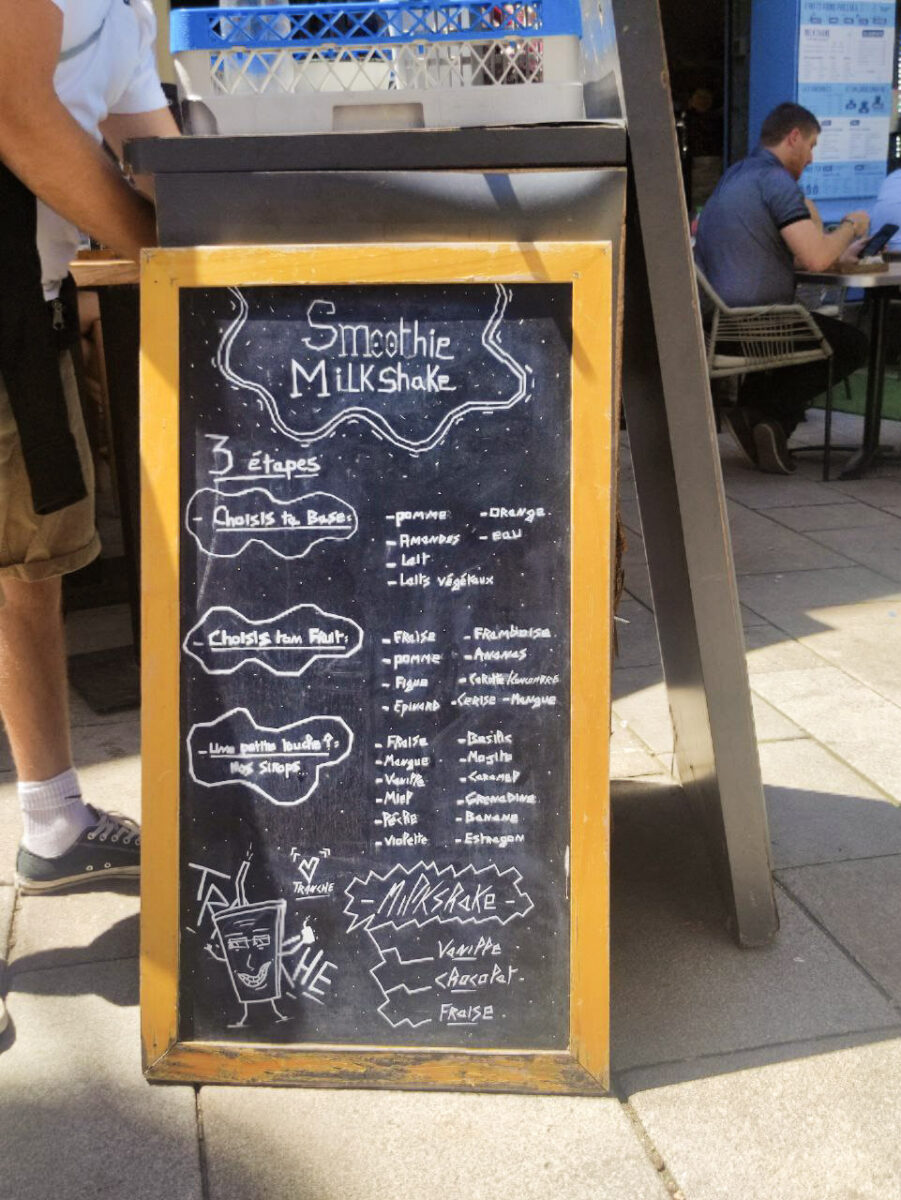 Smoothie
Milkshake
3 étapes
- Choisis ta Base:
- pomme - orange.
- Amandes - eau
- Lait
- Laits végétaux
- Choisis ton Fruit:
- Fraise - Framboise.
- pomme - Ananas
- Figue - Carotte/Concombre
- Epinard - Cerise - Mangue
- Une petite touche ?:
Nos sirops..
- Fraise - Basilic
- Mangue - Mojito
- Vanille - Caramel
- Miel - Grenadine.
- Pêche - Banane
- Violette - Estragon
TR HE
TRANCHE
- Milkshake -
Vanille
chocolat.
Fraise.